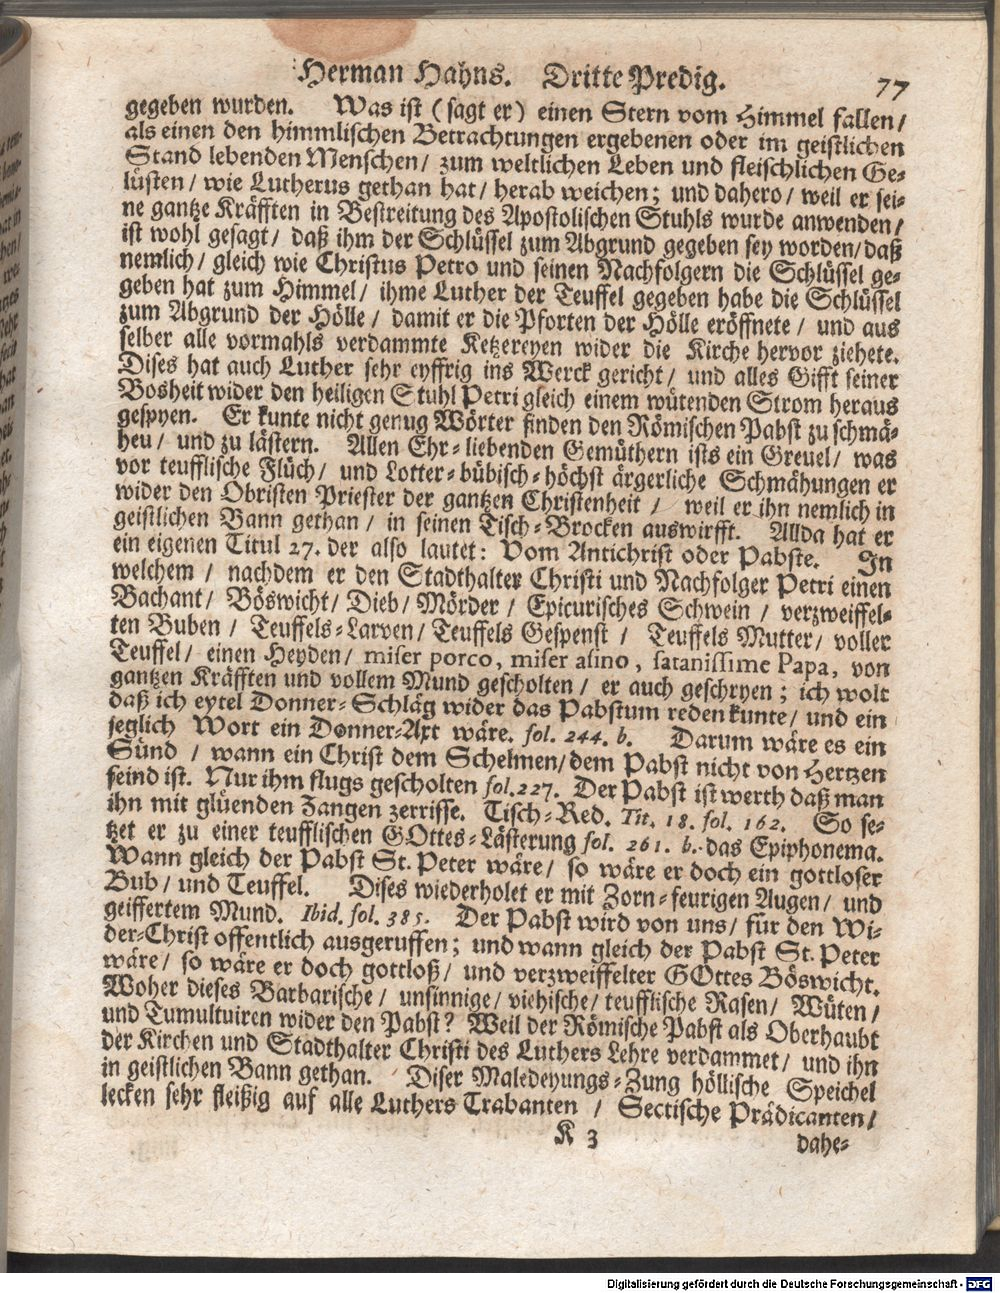 Herman Hahns. Dritte Predig. 77
gegeben wurden. Was ist (sagt er) einen Stern vom Himmel fallen/
als einen den himmlischen Betrachtungen ergebenen oder im geistlichen
Stand lebenden Menschen/ zum weltlichen Leben und fleischlichen Ge-
lüsten/ wie Lutherus gethan hat/ herab weichen; und dahero/ weil er sei-
ne gantze Kräfften in Bestreitung des Apostolischen Stuhls wurde anwenden/
ist wohl gesagt/ daß ihm der Schlüssel zum Abgrund gegeben sey worden/ daß
nemlich/ gleich wie Christus Petro und seinen Nachfolgern die Schlüssel ge-
geben hat zum Himmel/ ihme Luther der Teuffel gegeben habe die Schlüssel
zum Abgrund der Hölle/ damit er die Pforten der Hölle eröffnete/ und aus
selber alle vormahls verdammte Ketzereyen wider die Kirche hervor ziehete.
Dises hat auch Luther sehr eyffrig ins Werck gericht/ und alles Gifft seiner
Bosheit wider den heiligen Stuhl Petri gleich einem wütenden Strom heraus
gespyen. Er kunte nicht genug Wörter finden den Römischen Pabst zu schmä-
heu/ und zu lästern. Allen Ehr-liebenden Gemüthern ists ein Greuel/ was
vor teufflische Flüch/ und Lotter-bübisch-höchst ärgerliche Schmähungen er
wider den Obristen Priester der gantzen Christenheit/ weil er ihn nemlich in
geistlichen Bann gethan/ in seinen Tisch-Brocken auswirfft. Allda hat er
ein eigenen Titul 27. der also lautet: Vom Antichrist oder Pabste. In
welchem/ nachdem er den Stadthalter Christi und Nachfolger Petri einen
Bachant/ Böswicht/ Dieb/ Mörder/ Epicurisches Schwein/ verzweiffel-
ten Buben/ Teuffels-Larven/ Teuffels Gespenst/ Teuffels Mutter/ voller
Teuffel/ einen Heyden/ miser porco, miser asino, satanissime Papa, von
gantzen Kräfften und vollem Mund gescholten/ er auch geschryen; ich wolt
daß ich eytel Donner-Schläg wider das Pabstum reden kunte/ und ein
jeglich Wort ein Donner-Axt wäre. fol. 244. b. Darum wäre es ein
Sünd/ wann ein Christ dem Schelmen/ dem Pabst nicht von Hertzen
feind ist. Nur ihm flugs gescholten fol. 227. Der Pabst ist werth daß man
ihn mit glüenden Zangen zerrisse. Tisch-Red. Tit. 18. fol. 162. So se-
tzet er zu einer teufflischen GOttes-Lästerung fol. 261. b. das Epiphonema.
Wann gleich der Pabst St. Peter wäre/ so wäre er doch ein gottloser
Bub/ und Teuffel. Dises wiederholet er mit Zorn-feurigen Augen/ und
geiffertem Mund. Ibid. fol. 385. Der Pabst wird von uns/ für den Wi-
der-Christ offentlich ausgeruffen; und wann gleich der Pabst St. Peter
wäre/ so wäre er doch gottloß/ und verzweiffelter GOttes Böswicht.
Woher dieses Barbarische/ unsinnige/ viehische/ teufflische Rasen/ Wüten/
und Tumultuiren wider den Pabst? Weil der Römische Pabst als Oberhaubt
der Kirchen und Stadthalter Christi des Luthers Lehre verdammet/ und ihn
in geistlichen Bann gethan. Diser Maledeyungs-Zung höllische Speichel
lecken sehr fleißig auf alle Luthers Trabanten/ Sectische Prädicanten/
K 3 dahe-
Digitalisierung gefördert durch die Deutsche Forschungsgemeinschaft - DFG